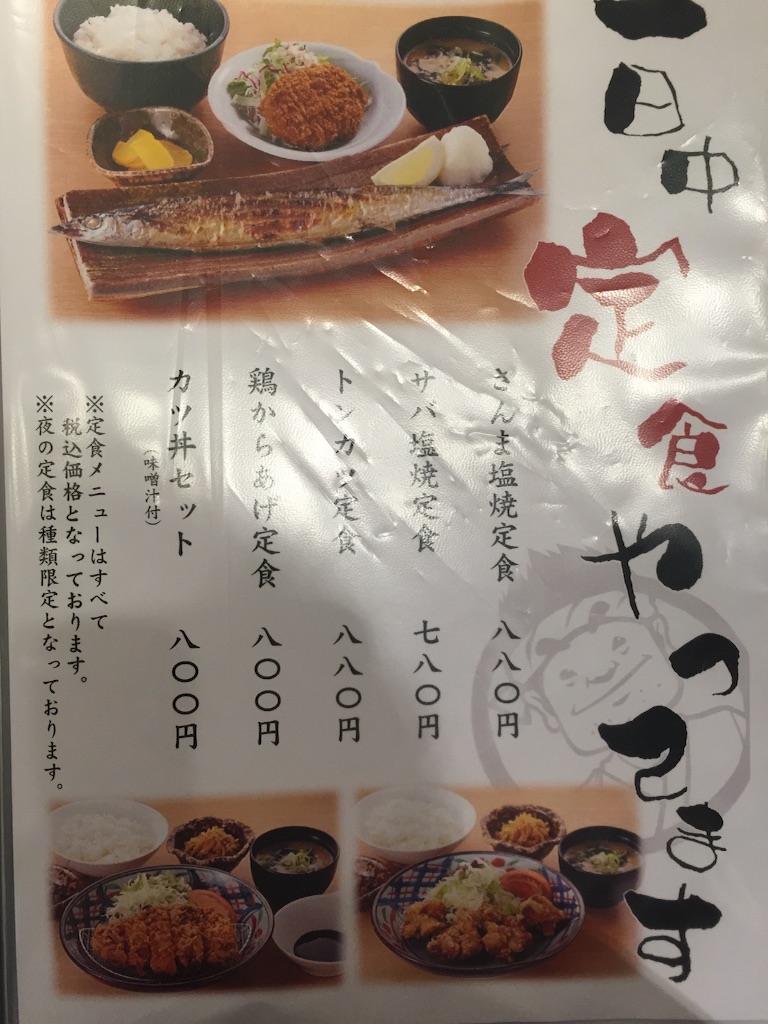 一日中定食やってます
さんま塩焼定食 八八〇円
サバ塩焼定食 七八〇円
トンカツ定食 八八〇円
鶏からあげ定食 八〇〇円
カツ丼セット 八〇〇円
(味噌汁付)
※定食メニューはすべて
税込価格となっております。
※夜の定食は種類限定となっております。